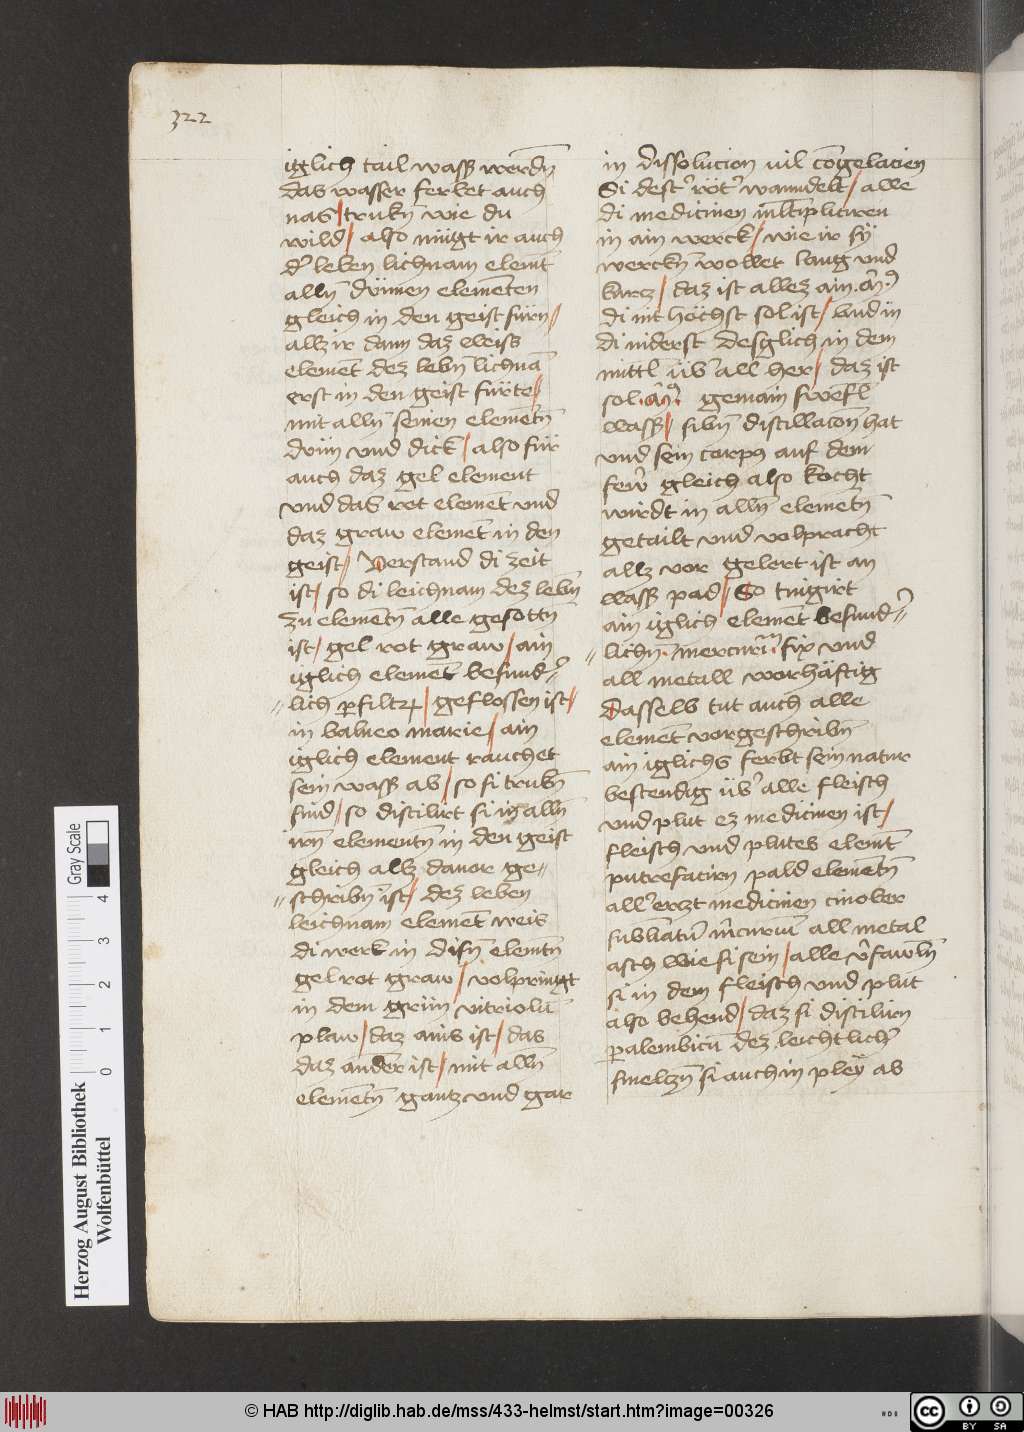 322
iglich tail wasß werdn̄
das wasser ferbet auch
nas / trukn̄ wie du
wild / also mügt ir auch
d' leben lichnam elemt̄
alln̄ dünnen elemēten
gleich in den geist fürn /
allz ir dann daz weiss
elemēt dez lebn̄ lichnā
erst in den geist fürte /
mit alln̄ seinen elemēt̄n
dün vnd dick / also für
auch daz gel element
vnd das rot elemēt vnd
daz graw elemēt in den
geist / Verstand di zeit
ist / so di leichnam dez lebn̄
zu elemētn̄ alle gesottn̄
ist / gel rot graw / ain
iglich elemēt besund'=
lich p̱filtrt / geflossen ist /
in balneo marie / ain
iglich element rauchet
sein wasß ab / so si trukn̄
sind / so distilirt si in alln̄
irn̄ elementn̄ in den geist
gleich allz dauor ge=
schribn̄ ist / dez leben
leichnam elemēt weis
di werk in disn̄ elemt̄n
gel rot graw / volpringt
in dem grün vitriolū
plaw / daz ains ist / das
daz ander ist / mit alln̄
elemētn̄ gantz vnd gar
in dissolucion vil cōgelacien
Si dest' röt' wanndelt / alle
di medicinen mltipliciren
in ain werck / wie ir sy
werckn̄ wollet lang vnd
kurcz / daz ist allez ain
di mit höchst sol ist / vnd in
di niderst desglich in dem
mittl üb' all her / daz ist
sol gemain swefl
wasß / sibn̄ distillacōn hat
vnd sein corpꝰ auf dem
fewr gleich also kocht
wirdt in alln̄ elemētn̄
getailt vnd volpracht
allz vor gelert ist an
wasß pad / So tingirt
ain iglich elemēt besund'=
lichn̄ mercuriū fix vnd
all metall worhäftig
Dasselb tut auch alle
elemēt vorgeschribn̄
ain iglichs ferbt sein natur
bestendig üb' alle fleisch
vnd plut ez medicinen ist /
fleisch vnd plutes elemt̄
putrefacirn pald elemētn̄
all' erzt medicinen cinober
sublimatū m̄curium̄ all metal
asch wie si sein / alle
si in dem fleisch vnd plut
also behend / daz si distilirn
p̱ alembicū dez leichtlich'
smelczn̄ si auch in pley ab
Herzog August Bibliothek
Wolfenbüttel
0 1 2 3 4
Gray Scale
© HAB http://diglib.hab.de/mss/433-helmst/start.htm?image=00326
cc BY SA